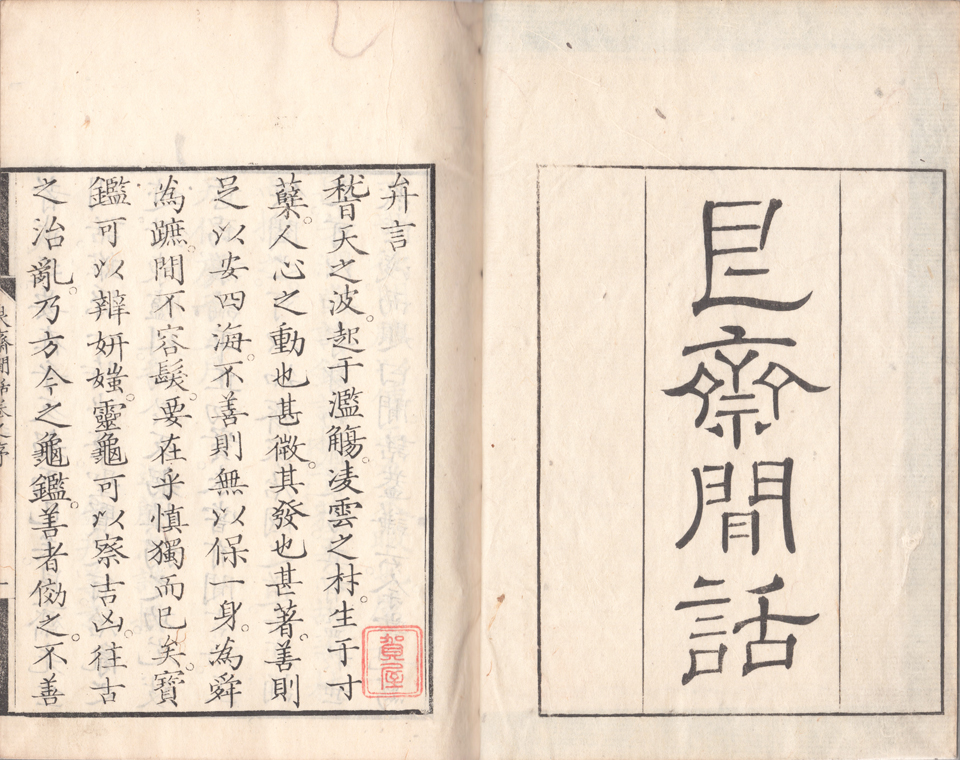 艮齋閒話
弁言
稽天之波。起于濫觴。凌雲之材。生于寸
蘖。人心之動也甚微。其發也甚著。善則
足以安四海。不善則無以保一身。為舜
為蹠。間不容髮。要在乎慎獨而已矣。寶
鑑可以辨妍媸。靈龜可以察吉凶。往古
之治亂。乃方今之龜鑑。善者傚之。不善
賀屋